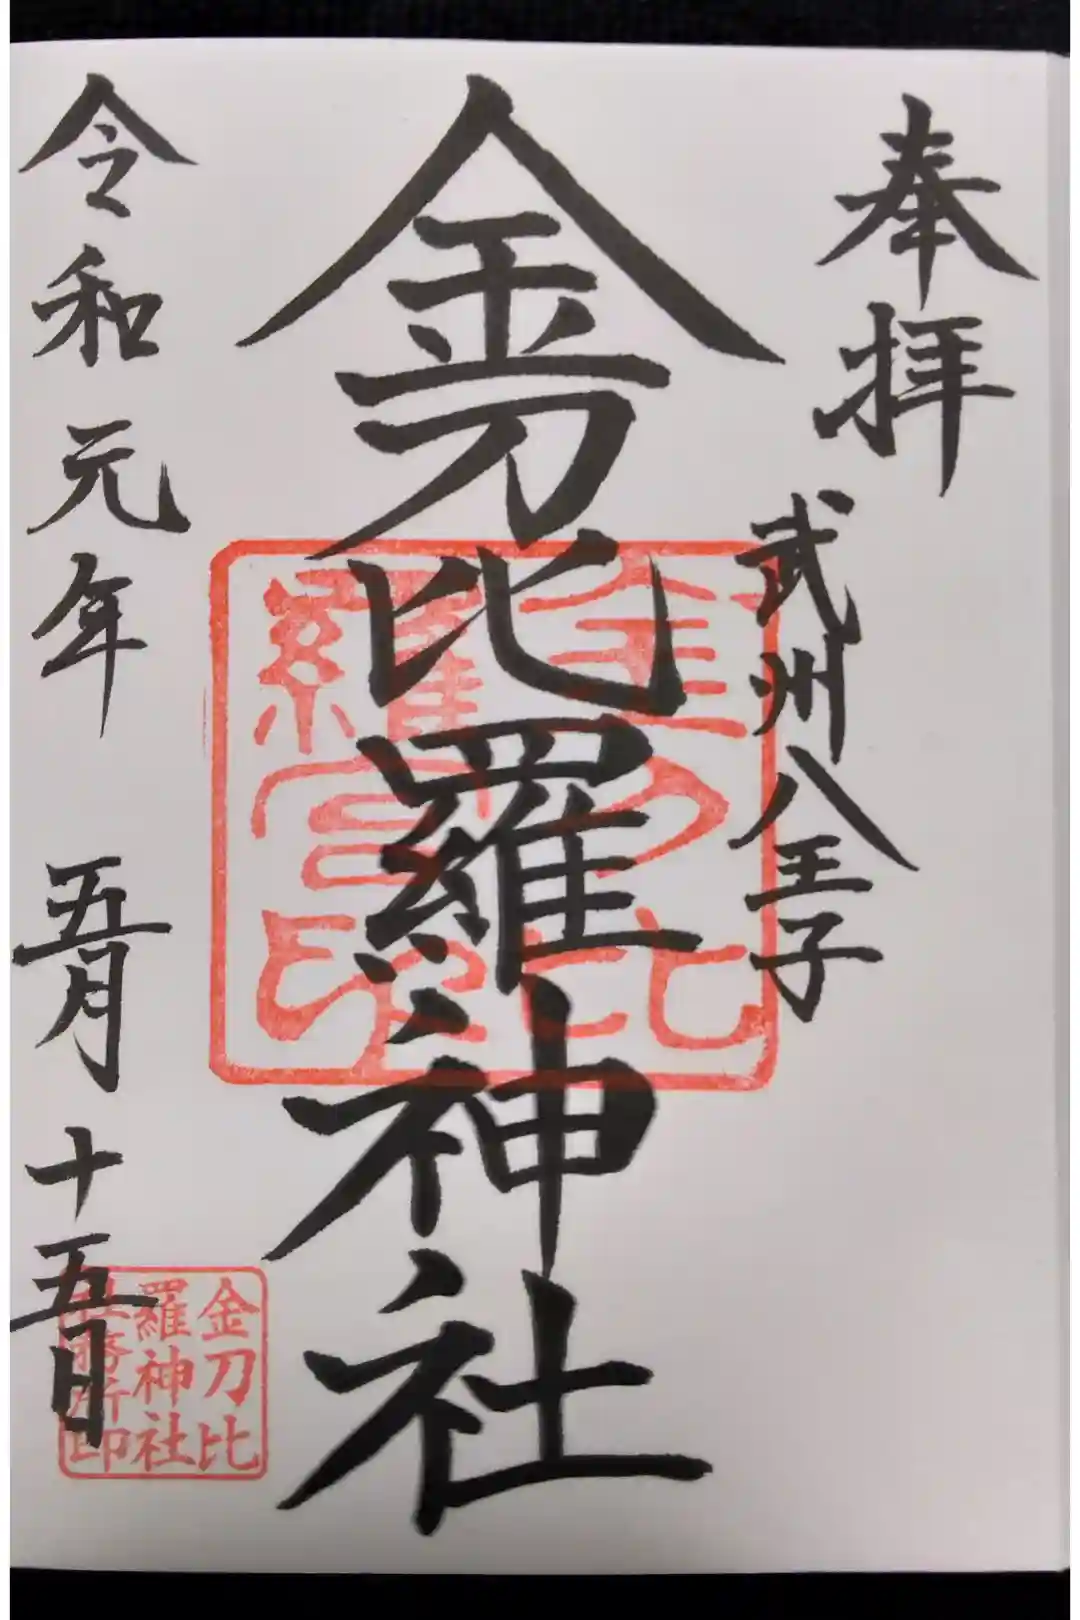 奉拝
武州八王子
金刀比羅神社
令和元年 五月十五日
金刀比
羅宮印
金刀比
羅神社
社務所印